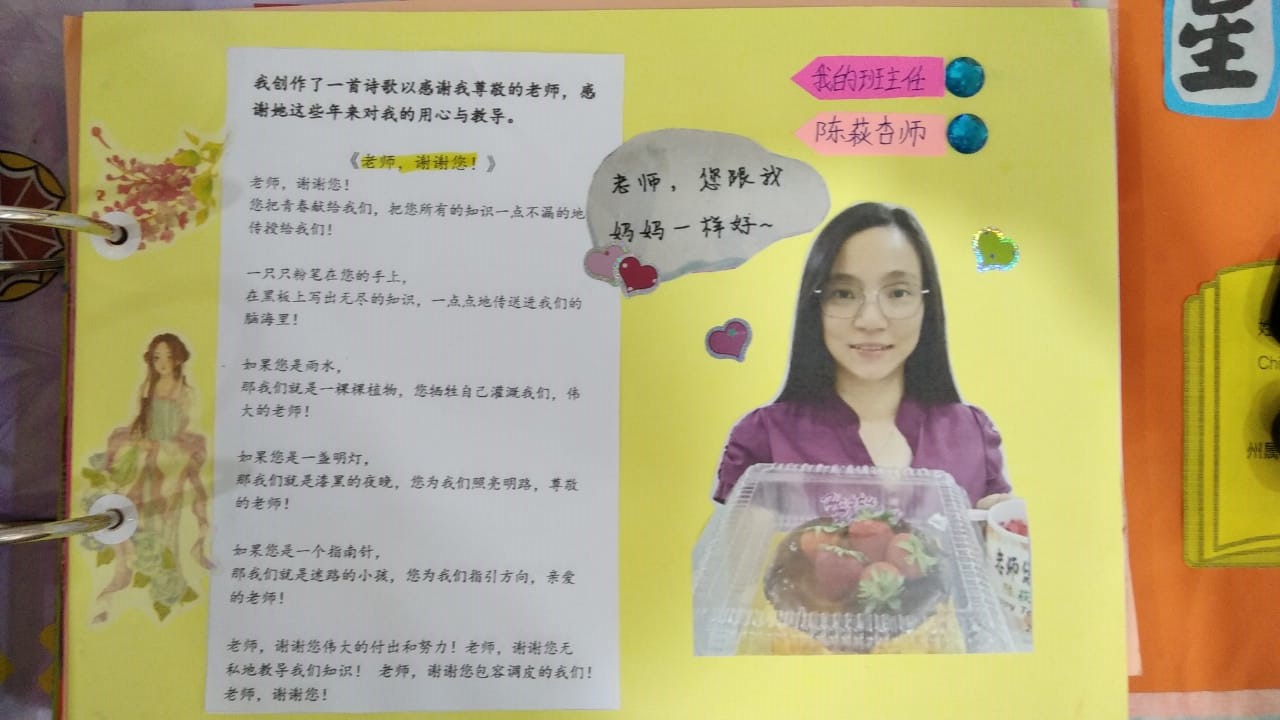 我创作了一首诗歌以感谢我尊敬的老师，感
谢她这些年来对我的用心与教导。
《老师，谢谢您！》
老师，谢谢您！
您把青春献给我们，把您所有的知识一点不漏的地
传授给我们！
一只只粉笔在您的手上，
在黑板上写出无尽的知识，一点点地传送进我们的
脑海里！
如果您是雨水，
那我们就是一棵棵植物，您牺牲自己灌溉我们，伟
大的老师！
如果您是一盏明灯，
那我们就是漆黑的夜晚，您为我们照亮明路，尊敬
的老师！
如果您是一个指南针，
那我们就是迷路的小孩，您为我们指引方向，亲爱
的老师！
老师，谢谢您伟大的付出和努力！老师，谢谢您无
私地教导我们知识！ 老师，谢谢您包容调皮的我们！
老师，谢谢您！
老师，您跟我
妈妈一样好~
我的班主任
陈萩杏师
老师
Chi
州属